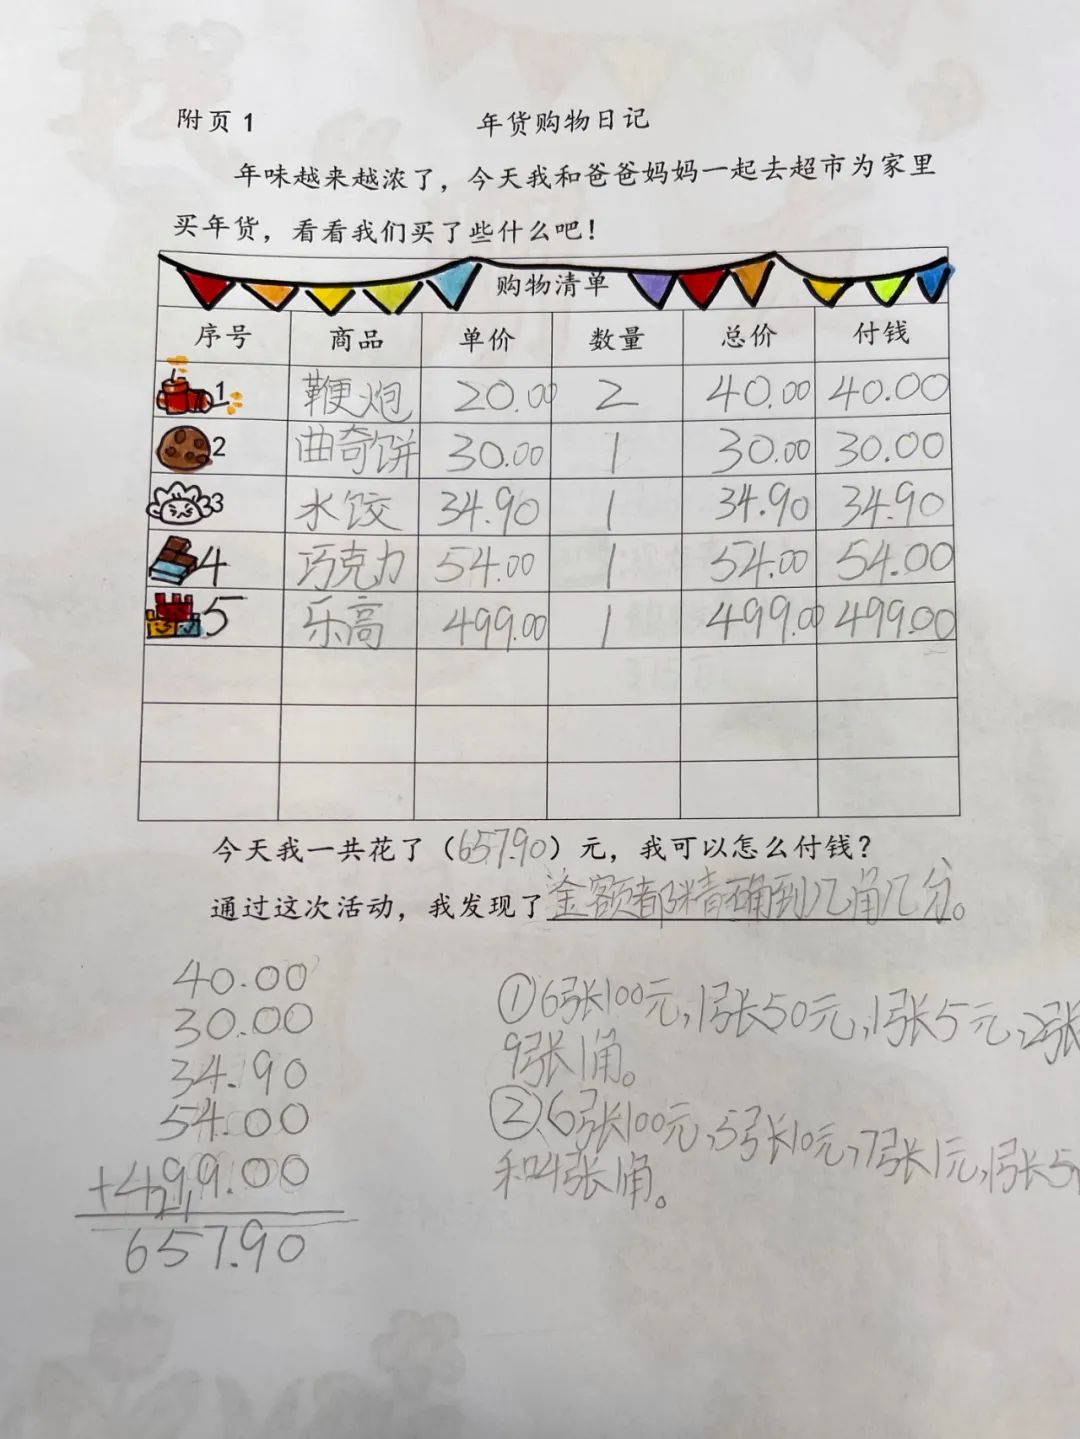 附页 1 年货购物日记
年味越来越浓了，今天我和爸爸妈妈一起去超市为家里
买年货，看看我们买了些什么吧！
购物清单
序号 商品 单价 数量 总价 付钱
1 鞭炮 20.00 2 40.00 40.00
2 曲奇饼 30.00 1 30.00 30.00
3 水饺 34.90 1 34.90 34.90
4 巧克力 54.00 1 54.00 54.00
5 乐高 499.00 1 499.00 499.00
今天我一共花了（657.90）元，我可以怎么付钱？
通过这次活动，我发现了金额都精确到几角几分。
40.00
30.00
34.90
54.00
+499.00
21
657.90
①6张100元，1张50元，1张5元，2张
9张1角。
②6张100元，5张10元，7张1元，1张5
和4张1角。